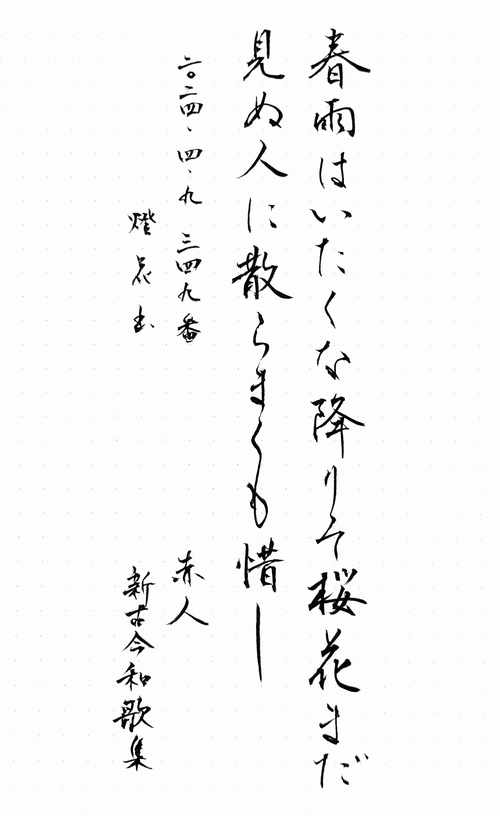 春雨はいたくな降りそ桜花まだ
見ぬ人に散らまくも惜し
二〇二四、四、九 三四九番
赤人
新古今和歌集